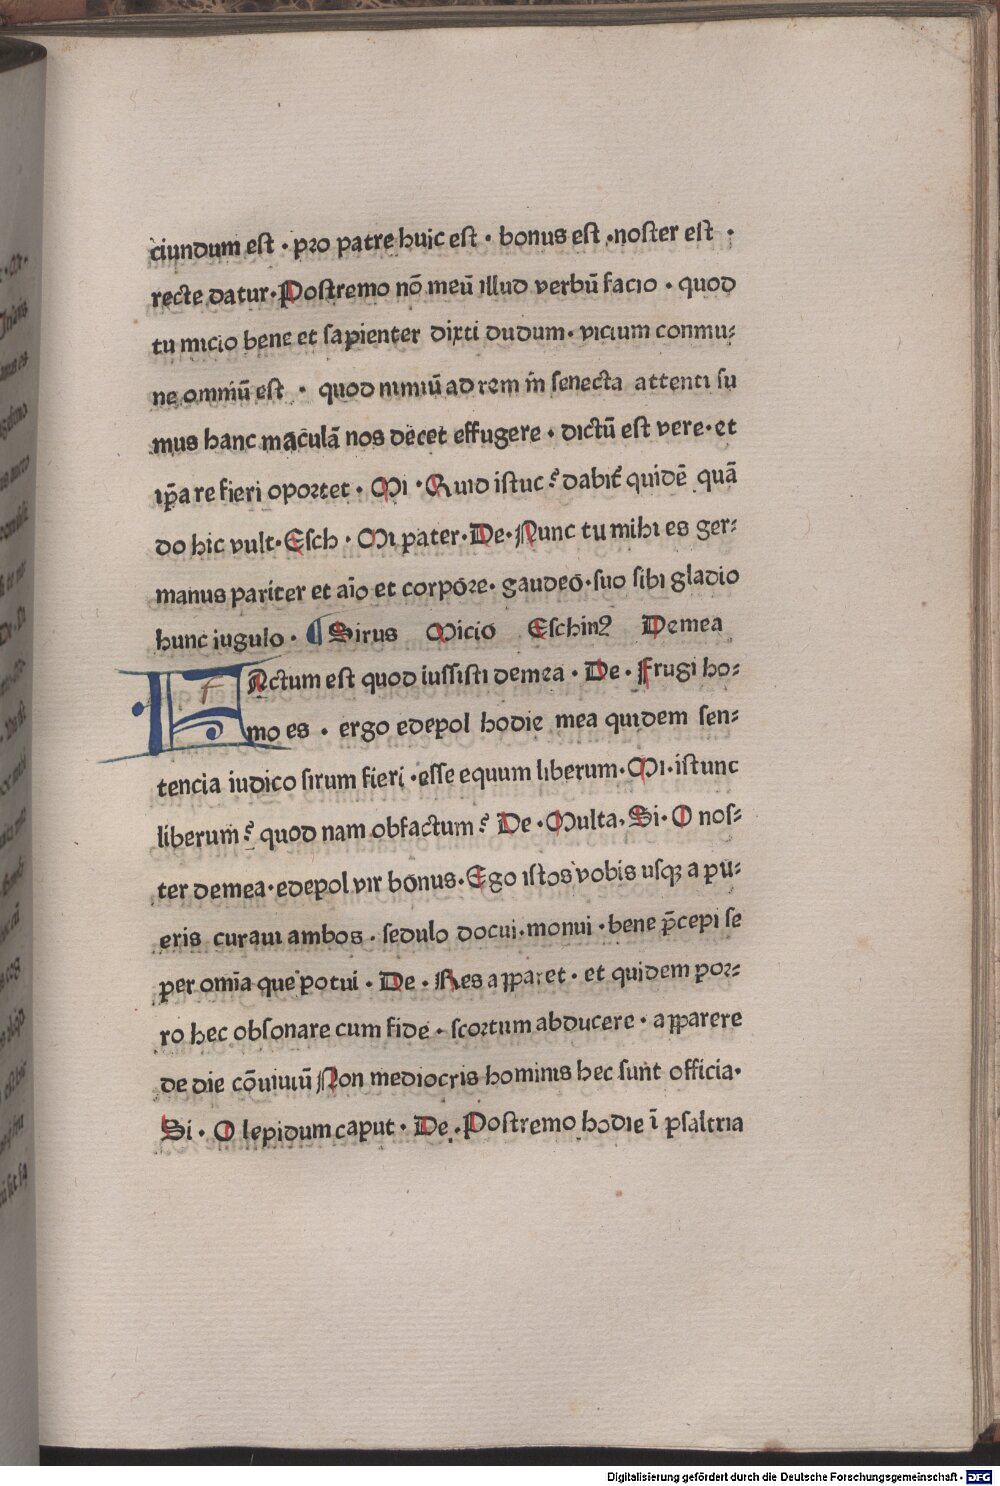 ciundum eſt · pro patre huic eſt · bonus eſt ·noſter eſt ·
recte datur·Poſtremo nō meū illud verbū facio · quod
tu micio bene et ſapienter dixti dudum· vicium conmu⸗
ne omniū eſt · quod nimiū ad rem in ſenecta attenti ſu
mus hanc maculā nos decet effugere · dictū eſt vere·et
ip̄a re fieri oportet · Mi ·Quid iſtuc? dabit᷑ quidē quā
do hic vult·Eſch · Mi pater·De·Nunc tu mihi es ger⸗
manus pariter et aīo et corpore· gaudeo·ſuo ſibi gladio
hunc iugulo · ¶ Sirus Micio Eſchinꝰ Demea
FActum eſt quod iuſſiſti demea · De · Frugi ho⸗
mo es · ergo edepol hodie mea quidem ſen⸗
tencia iudico ſirum fieri ·eſſe equum liberum·Mi·iſtunc
liberum? quod nam obfactum? De ·Multa·Si· O noſ⸗
ter demea·edepol vir bonus·Ego iſtos vobis uſqꝫ a pu⸗
eris curaui ambos · ſedulo docui·monui ·bene p̄cepi ſe
per omīa que potui · De · Res apparet · et quidem por⸗
ro hec obſonare cum fide · ſcortum abducere · apparere
de die cōuiuiū Non mediocris hominis hec ſunt officia·
Si · O lepidum caput · De ·Poſtremo hodie ī pſaltria
Digitalisierung gefördert durch die Deutsche Forschungsgemeinschaft · DFG